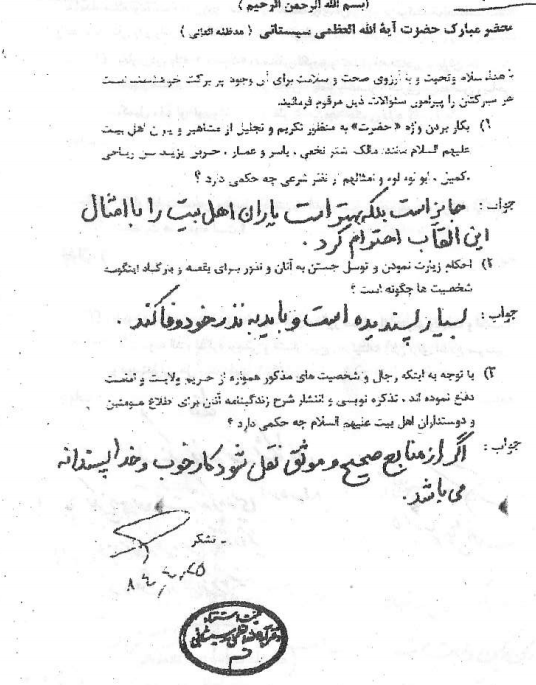 (بسم الله الرحمن الرحیم)
محضر مبارک حضرت آیة الله العظمی سیستانی (مدظله العالی)
با هداء سلام وتحیت و با آرزوی صحت و سلامت برای آن وجود پر برکت خواهشمند است
نظر مبارکتان را پیرامون سئوالات ذیل مرقوم فرمائید.
۱) بکار بردن واژه «حضرت» به منظور تکریم و تجلیل از مشاهیر و یاران اهل بیت
علیهم السلام مانند: مالک اشتر نخعی، یاسر و عمار، حر بن یزید ریاحی
کمیل، ابو لوه لوه و امثالهم از نظر شرعی چه حکمی دارد ؟
جواب : جایز است بلکه بهتر است یاران اهل بیت را با امثال
این القاب احترام کرد .
۲) احکام زیارت نمودن و توسل جستن به آنان و نذور برای بقعه و بارگاه اینگونه
شخصیت ها چگونه است ؟
جواب : بسیار پسندیده است و باید به نذر خود وفا کند .
۳) با توجه به اینکه رجال و شخصیت های مذکور همواره از حریم ولایت و امامت
دفاع نموده اند ، تذکره نویسی و انتشار شرح زندگینامه آنان برای اطلاع مومنین
و دوستداران اهل بیت علیهم السلام چه حکمی دارد ؟
جواب : اگر از منابع صحیح و موثق نقل شود کار خوب و خدا پسندانه
می باشد .
با تشکر
۸۴,۴,۲۵